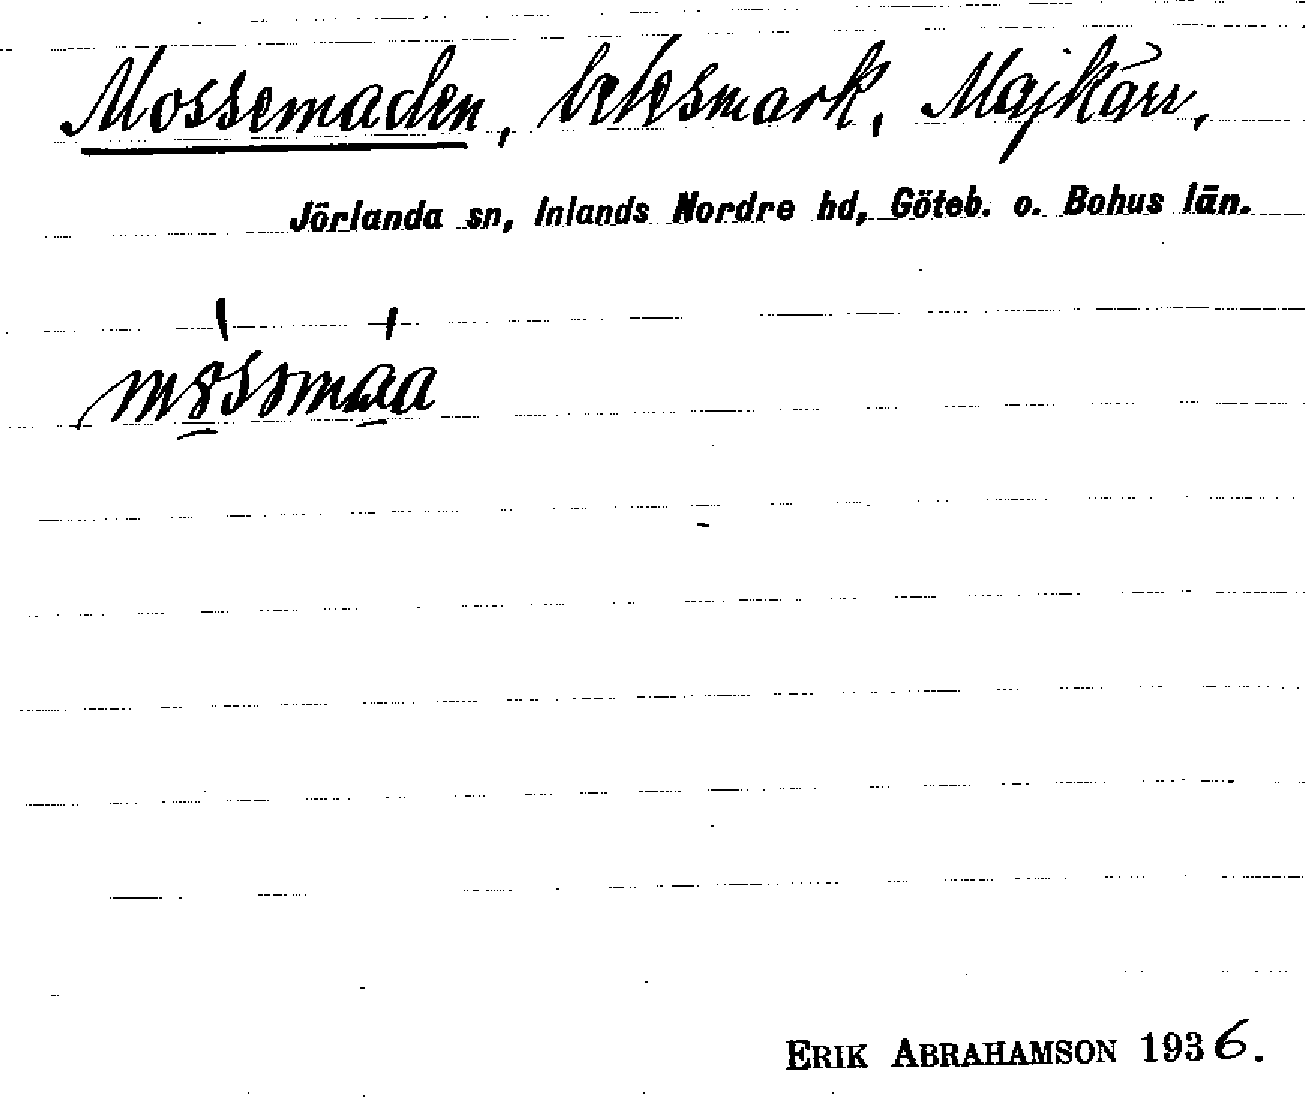 Mossemaden, betesmark, Majkärr,
Jörlanda sn, Inlands Nordre hd, Göteb. o. Bohus län.
ERIK ABRAHAMSON 1936.